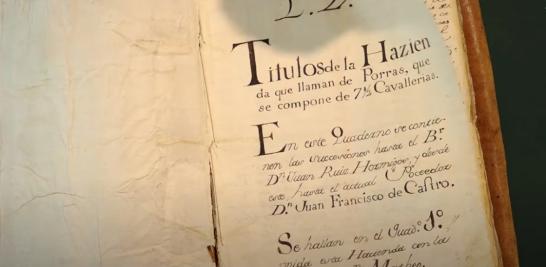 L. 2.
Titulos de la Hazien
da que llaman de Porras, que
se compone de 7½ Cavallerias.
En este Quaderno se contie-
nen las succesiones hasta el Br.
Dn. Juan Ruiz Hormigos, y desde
este hasta el actual Poceedor
Dn. Juan Francisco de Castro.
Se hallan en el Quad.º 1º
unida esta Hacienda con la